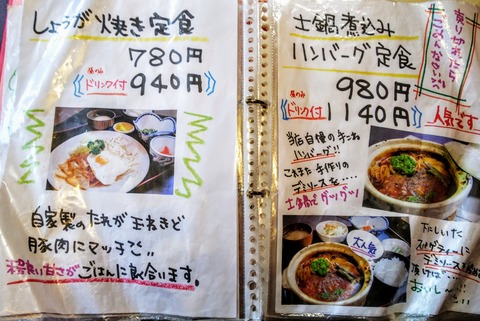 しょうが焼き定食
780円
夜のみ
ドリンク付
940円
自家製のたれが玉ねぎと
豚肉にマッチで、、
ごはんに良く合います。
土鍋煮込み
ハンバーグ定食
980円
夜のみ
ドリンク付
1140円
売り切れたら
ごめんなさい
人気です
当店自慢の手ごね
ハンバーグ!!
これまた手作りの
デミソースを
土鍋でグツグツ
大人気
下にしいた
スパゲティーに
デミソースを
頂けば
おいしい